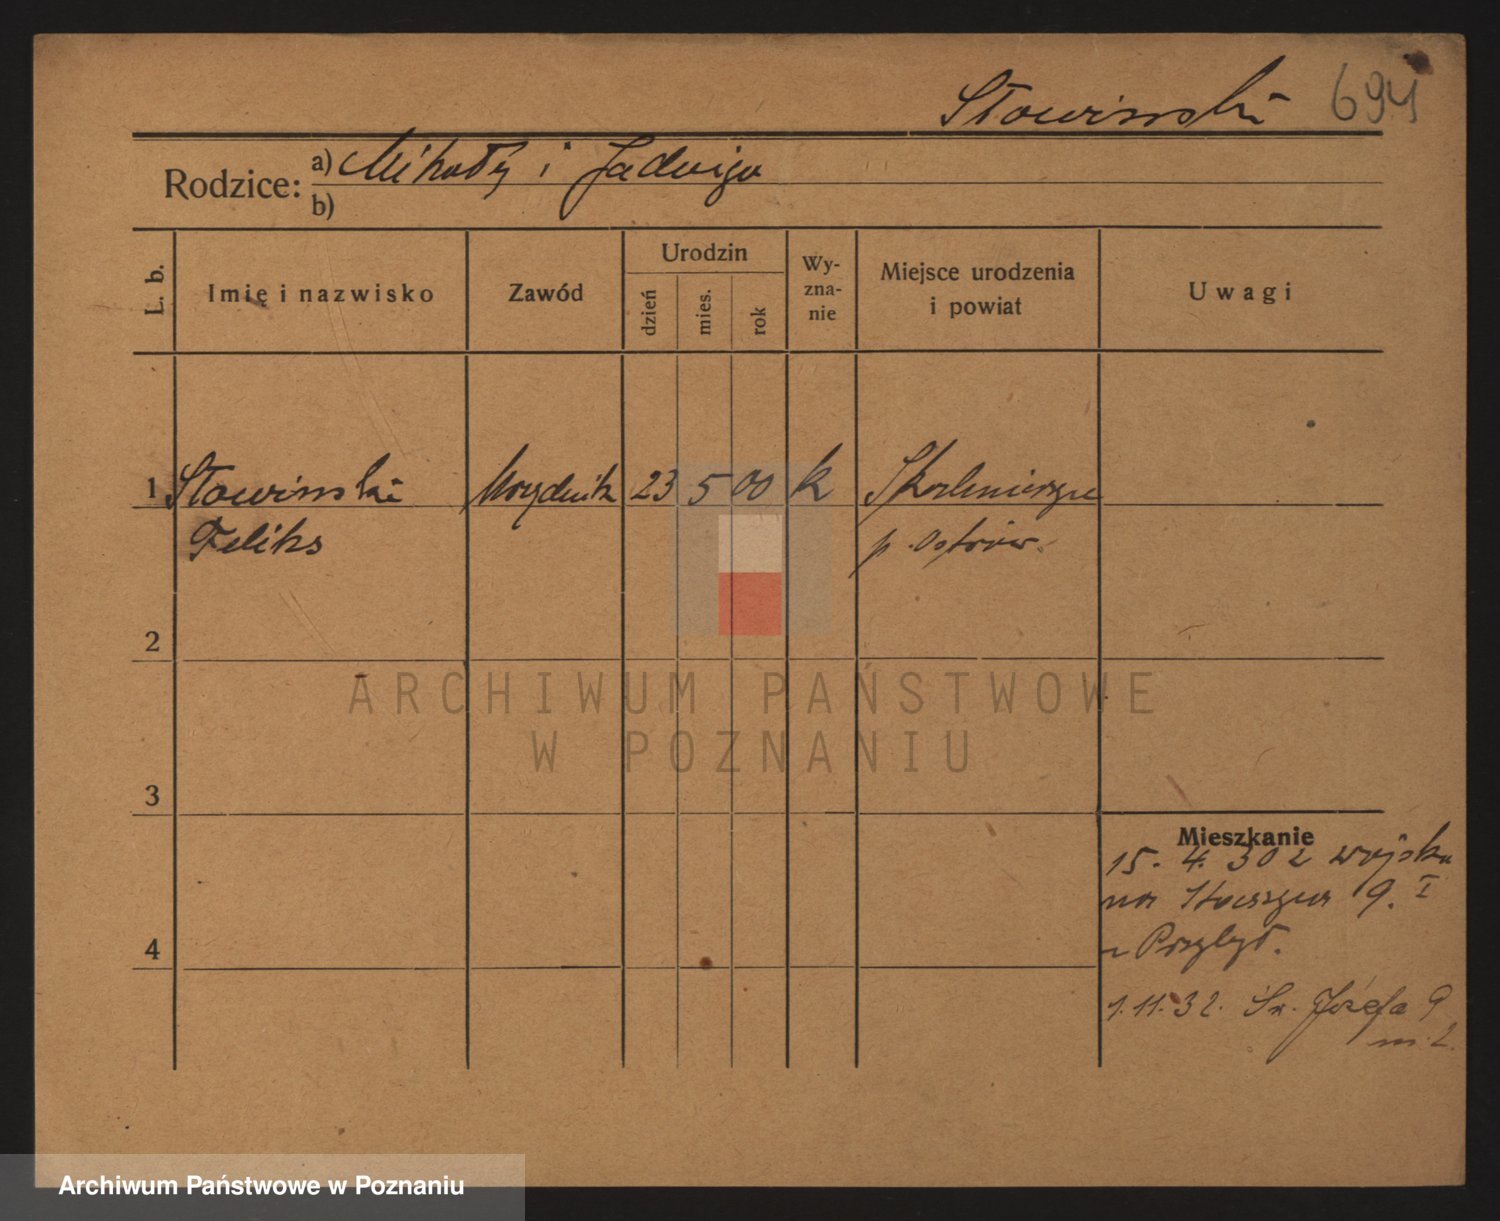 Słowinski 694
Rodzice: a) Mikołaj i Jadwiga
b)
L. b. Imię i nazwisko Zawód Urodzin dzień mies. rok Wyznanie Miejsce urodzenia i powiat Uwagi
1 Słowinski Urzędnik 23 5 00 k Skalmierzyce
Feliks p. Ostrów.
2
ARCHIWUM PAŃSTWOWE
W POZNANIU
3
Mieszkanie
15. 4. 30 z wojska
na 9. I
4
1. 11. 32. Św. Józefa 9
m. 2.
Archiwum Państwowe w Poznaniu